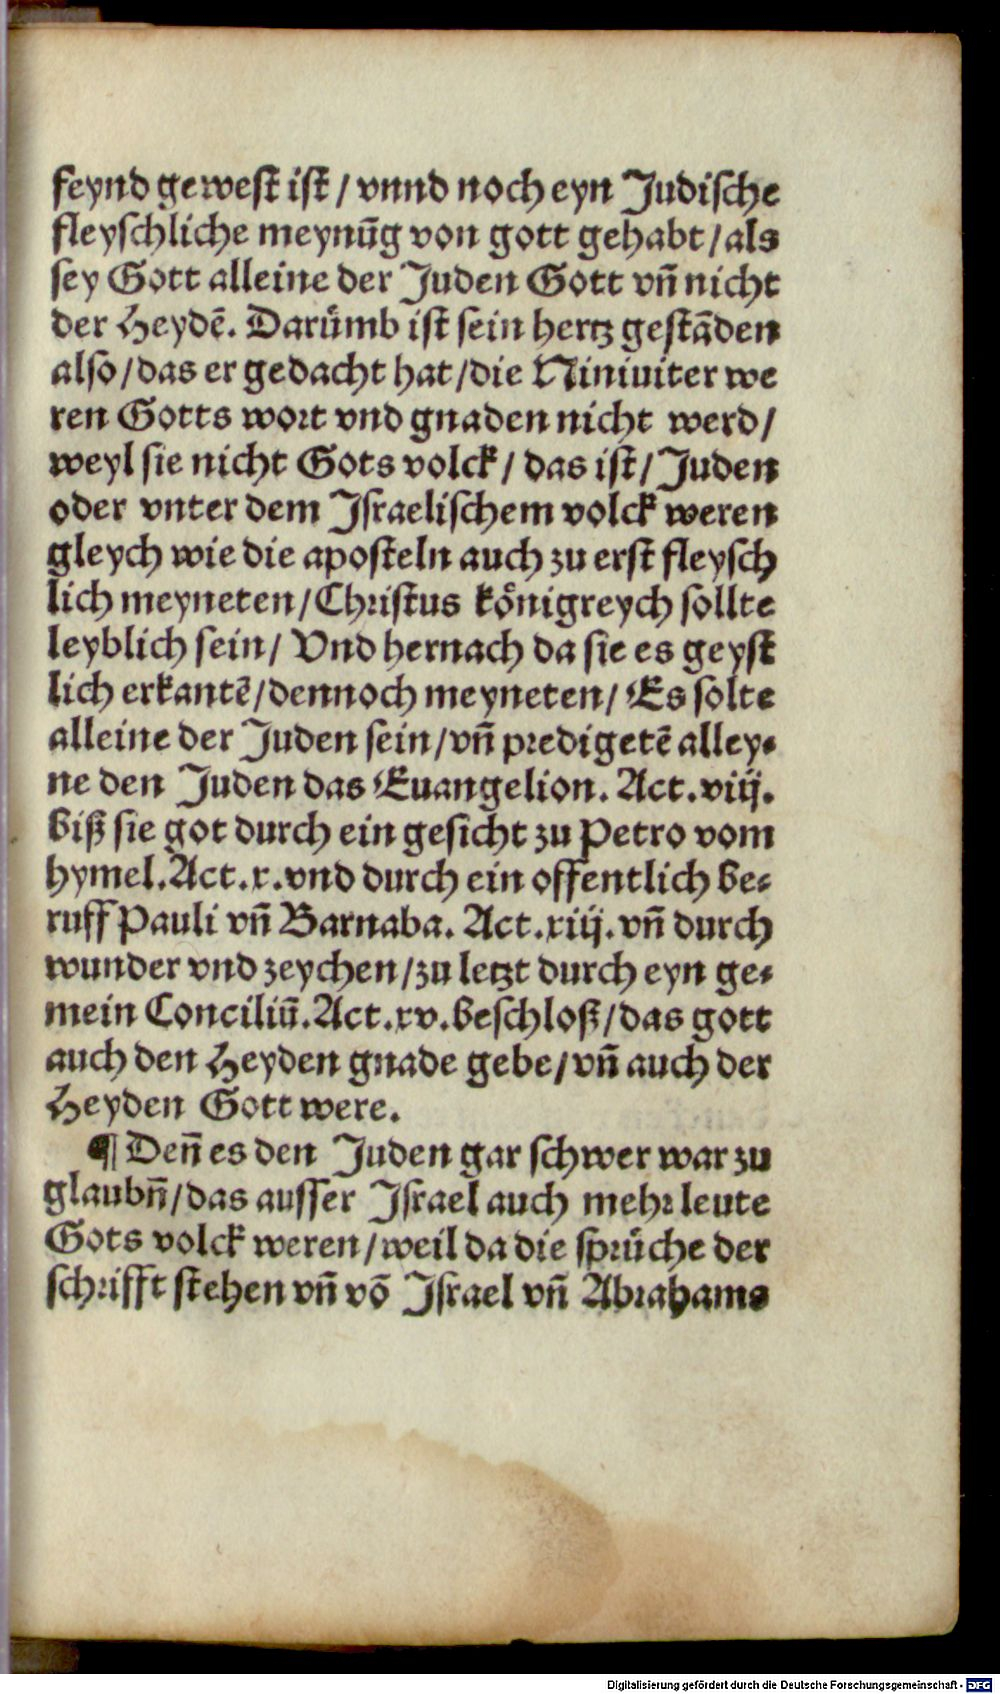 feynd gewest ist / vnnd noch eyn Judische
fleyschliche meynūg von gott gehabt / als
sey Gott alleine der Juden Gott vn̄ nicht
der Heydē. Darümb ist sein hertz gestāden
also / das er gedacht hat / die Niniuiter we
ren Gotts wort vnd gnaden nicht werd /
weyl sie nicht Gots volck / das ist / Juden
oder vnter dem Israelischem volck weren
gleych wie die aposteln auch zu erst fleysch
lich meyneten / Christus königreych sollte
leyblich sein / Vnd hernach da sie es geyst
lich erkantē / dennoch meyneten / Es solte
alleine der Juden sein / vn̄ predigetē alley⸗
ne den Juden das Euangelion. Act. viij.
biß sie got durch ein gesicht zu Petro vom
hymel. Act. x. vnd durch ein offentlich be⸗
ruff Pauli vn̄ Barnaba. Act. xiij. vn̄ durch
wunder vnd zeychen / zu letzt durch eyn ge⸗
mein Conciliū. Act. xv. beschloß / das gott
auch den Heyden gnade gebe / vn̄ auch der
Heyden Gott were.
¶ Den̄ es den Juden gar schwer war zu
glaubn̄ / das ausser Israel auch mehr leute
Gots volck weren / weil da die sprüche der
schrifft stehen vn̄ vō Israel vn̄ Abrahams
Digitalisierung gefördert durch die Deutsche Forschungsgemeinschaft - DFG